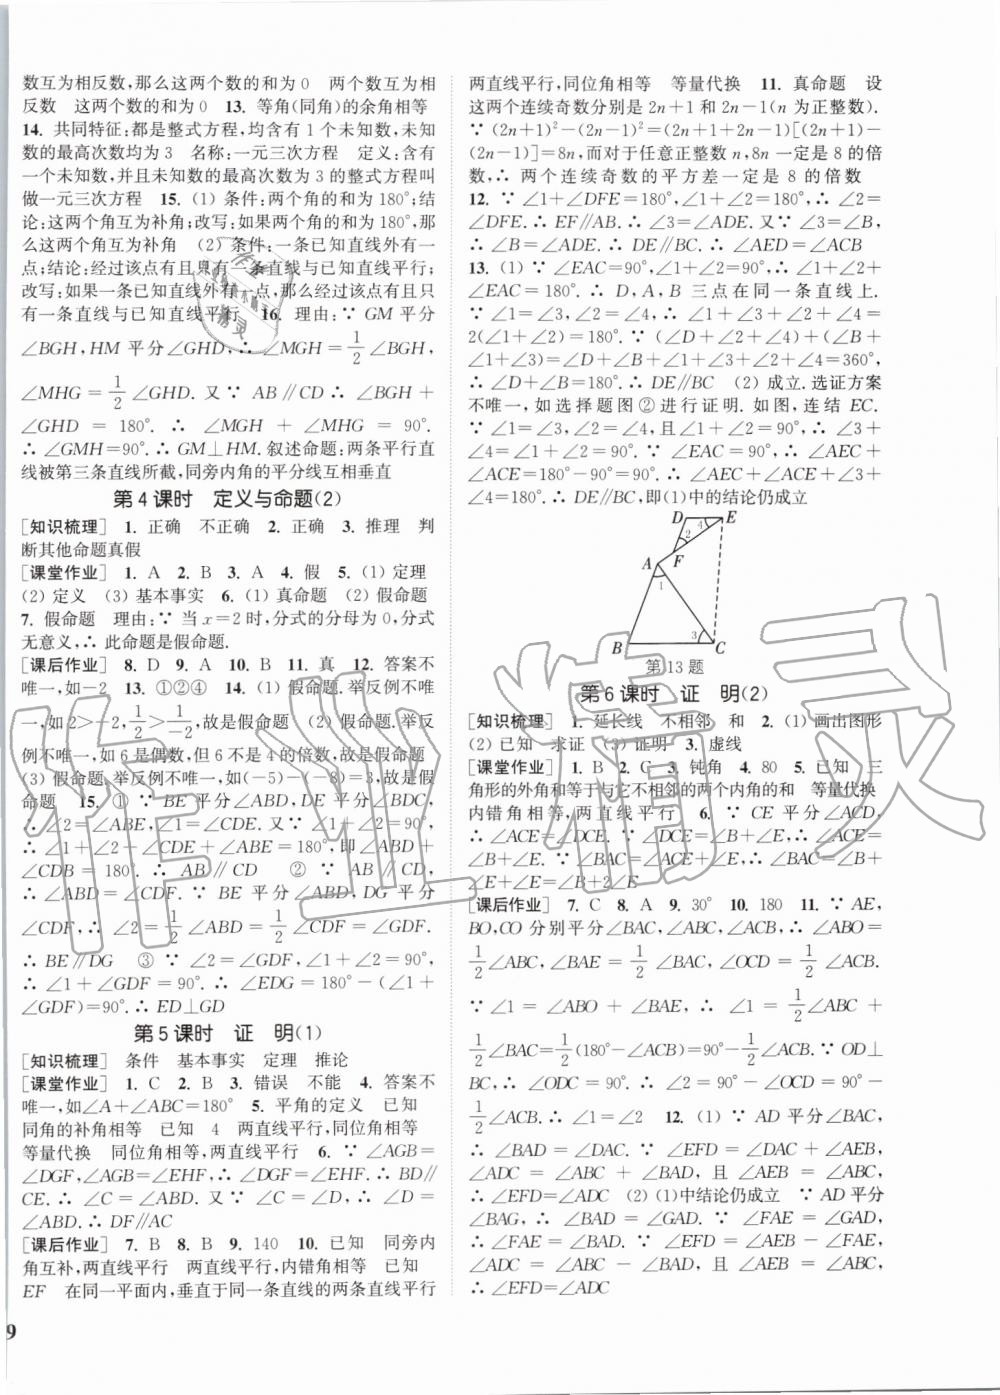 数互为相反数,那么这两个数的和为0　两个数互为相
反数　这两个数的和为0　13. 等角(同角)的余角相等
14. 共同特征:都是整式方程,均含有1个未知数,未知
数的最高次数均为3　名称:一元三次方程　定义:含有
一个未知数,并且未知数的最高次数为3的整式方程叫
做一元三次方程　15. (1) 条件:两个角的和为180°;结
论:这两个角互为补角;改写:如果两个角的和为180°,那
么这两个角互为补角　(2) 条件:一条已知直线外有一
点;结论:经过该点有且只有一条直线与已知直线平行;
改写:如果一条已知直线外有一点,那么经过该点有且只
有一条直线与已知直线平行　16. 理由:∵ GM平分
∠BGH,HM平分∠GHD,∴ ∠MGH=1/2∠BGH,
∠MHG=1/2∠GHD. 又∵ AB∥CD∴ ∠BGH+
∠GHD=180°. ∴ ∠MGH+∠MHG=90°.
∴ ∠GMH=90°. ∴ GM⊥HM. 叙述命题:两条平行直
线被第三条直线所截,同旁内角的平分线互相垂直
第4课时　定义与命题(2)
[知识梳理] 1. 正确　不正确　2. 正确　3. 推理　判
断其他命题真假
[课堂作业] 1. A　2. B　3. A　4. 假　5. (1) 定理
(2) 定义　(3) 基本事实　6. (1) 真命题　(2) 假命题
7. 假命题　理由:∵ 当x=2时,分式的分母为0,分式
无意义,∴ 此命题是假命题.
[课后作业] 8. D　9. A　10. B　11. 真　12. 答案不
唯一,如-2　13. ①②④　14. (1) 假命题. 举反例不唯
一,如2>-2,1/2>1/-2,故是假命题　(2) 假命题. 举反
例不唯一,如6是偶数,但6不是4的倍数,故是假命题
(3) 假命题. 举反例不唯一,如(-5)-(-8)=3,故是假
命题　15. ① ∵ BE平分∠ABD,DE平分∠BDC,
∴ ∠2=∠ABE,∠1=∠CDE. 又∵ ∠1+∠2=90°,
∴ ∠1+∠2+∠CDE+∠ABE=180°,即∠ABD+
∠CDB=180°. ∴ AB∥CD　② ∵ AB∥CD,
∴ ∠ABD=∠CDF. ∵ BE平分∠ABD,DG平分
∠CDF,∴ ∠2=1/2∠ABD=1/2∠CDF=∠GDF.
∴ BE∥DG　③ ∵ ∠2=∠GDF,∠1+∠2=90°,
∴ ∠1+∠GDF=90°. ∴ ∠EDG=180°-(∠1+
∠GDF)=90°. ∴ ED⊥GD
第5课时　证　明(1)
[知识梳理] 条件　基本事实　定理　推论
[课堂作业] 1. C　2. B　3. 错误　不能　4. 答案不
唯一,如∠A+∠ABC=180°　5. 平角的定义　已知
同角的补角相等　已知　4　两直线平行,同位角相等
等量代换　同位角相等,两直线平行　6. ∵ ∠AGB=
∠DGF,∠AGB=∠EHF,∴ ∠DGF=∠EHF. ∴ BD∥
CE. ∴ ∠C=∠ABD. 又∵ ∠C=∠D,∴ ∠D=
∠ABD. ∴ DF∥AC
[课后作业] 7. B　8. B　9. 140　10. 已知　同旁内
角互补,两直线平行　两直线平行,内错角相等　已知
EF　在同一平面内,垂直于同一条直线的两条直线平行
9
两直线平行,同位角相等　等量代换　11. 真命题　设
这两个连续奇数分别是2n+1和2n-1(n为正整数).
∵ (2n+1)²-(2n-1)²=(2n+1+2n-1)[(2n+1)-
(2n-1)]=8n,而对于任意正整数n,8n一定是8的倍
数,∴ 两个连续奇数的平方差一定是8的倍数
12. ∵ ∠1+∠DFE=180°,∠1+∠2=180°,∴ ∠2=
∠DFE. ∴ EF∥AB. ∴ ∠3=∠ADE. 又∵ ∠3=∠B,
∴ ∠B=∠ADE. ∴ DE∥BC. ∴ ∠AED=∠ACB
13. (1) ∵ ∠EAC=90°,∠1+∠2=90°,∴ ∠1+∠2+
∠EAC=180°. ∴ D,A,B三点在同一条直线上.
∵ ∠1=∠3,∠2=∠4,∴ ∠1+∠3+∠2+∠4=
2(∠1+∠2)=180°. ∵ (∠D+∠2+∠4)+(∠B+
∠1+∠3)=∠D+∠B+∠1+∠3+∠2+∠4=360°,
∴ ∠D+∠B=180°. ∴ DE∥BC　(2) 成立. 选证方案
不唯一,如选择题图②进行证明. 如图,连结EC.
∵ ∠1=∠3,∠2=∠4,且∠1+∠2=90°,∴ ∠3+
∠4=∠1+∠2=90°. ∵ ∠EAC=90°,∴ ∠AEC+
∠ACE=180°-90°=90°. ∴ ∠AEC+∠ACE+∠3+
∠4=180°. ∴ DE∥BC,即(1)中的结论仍成立
D
4
E
2
A
F
1
3
B
C
第13题
第6课时　证　明(2)
[知识梳理] 1. 延长线　不相邻　和　2. (1) 画出图形
(2) 已知　求证　(3) 证明　3. 虚线
[课堂作业] 1. B　2. C　3. 钝角　4. 80　5. 已知　三
角形的外角和等于与它不相邻的两个内角的和　等量代换
内错角相等,两直线平行　6. ∵ CE平分∠ACD,
∴ ∠ACE=∠DCE. ∵ ∠DCE=∠B+∠E,∴ ∠ACE=
∠B+∠E. ∵ ∠BAC=∠ACE+∠E,∴ ∠BAC=∠B+
∠E+∠E=∠B+2∠E
[课后作业] 7. C　8. A　9. 30°　10. 180　11. ∵ AE,
BO,CO分别平分∠BAC,∠ABC,∠ACB,∴ ∠ABO=
1/2∠ABC,∠BAE=1/2∠BAC,∠OCD=1/2∠ACB.
∵ ∠1=∠ABO+∠BAE,∴ ∠1=1/2∠ABC+
1/2∠BAC=1/2(180°-∠ACB)=90°-1/2∠ACB. ∵ OD⊥
BC,∴ ∠ODC=90°. ∴ ∠2=90°-∠OCD=90°-
1/2∠ACB. ∴ ∠1=∠2　12. (1) ∵ AD平分∠BAC,
∴ ∠BAD=∠DAC. ∵ ∠EFD=∠DAC+∠AEB,
∠ADC=∠ABC+∠BAD,且∠AEB=∠ABC,
∴ ∠EFD=∠ADC　(2) (1)中结论仍成立　∵ AD平分
∠BAG,∴ ∠BAD=∠GAD. ∵ ∠FAE=∠GAD,
∴ ∠FAE=∠BAD. ∵ ∠EFD=∠AEB-∠FAE,
∠ADC=∠ABC-∠BAD,且∠AEB=∠ABC,
∴ ∠EFD=∠ADC
作业精灵